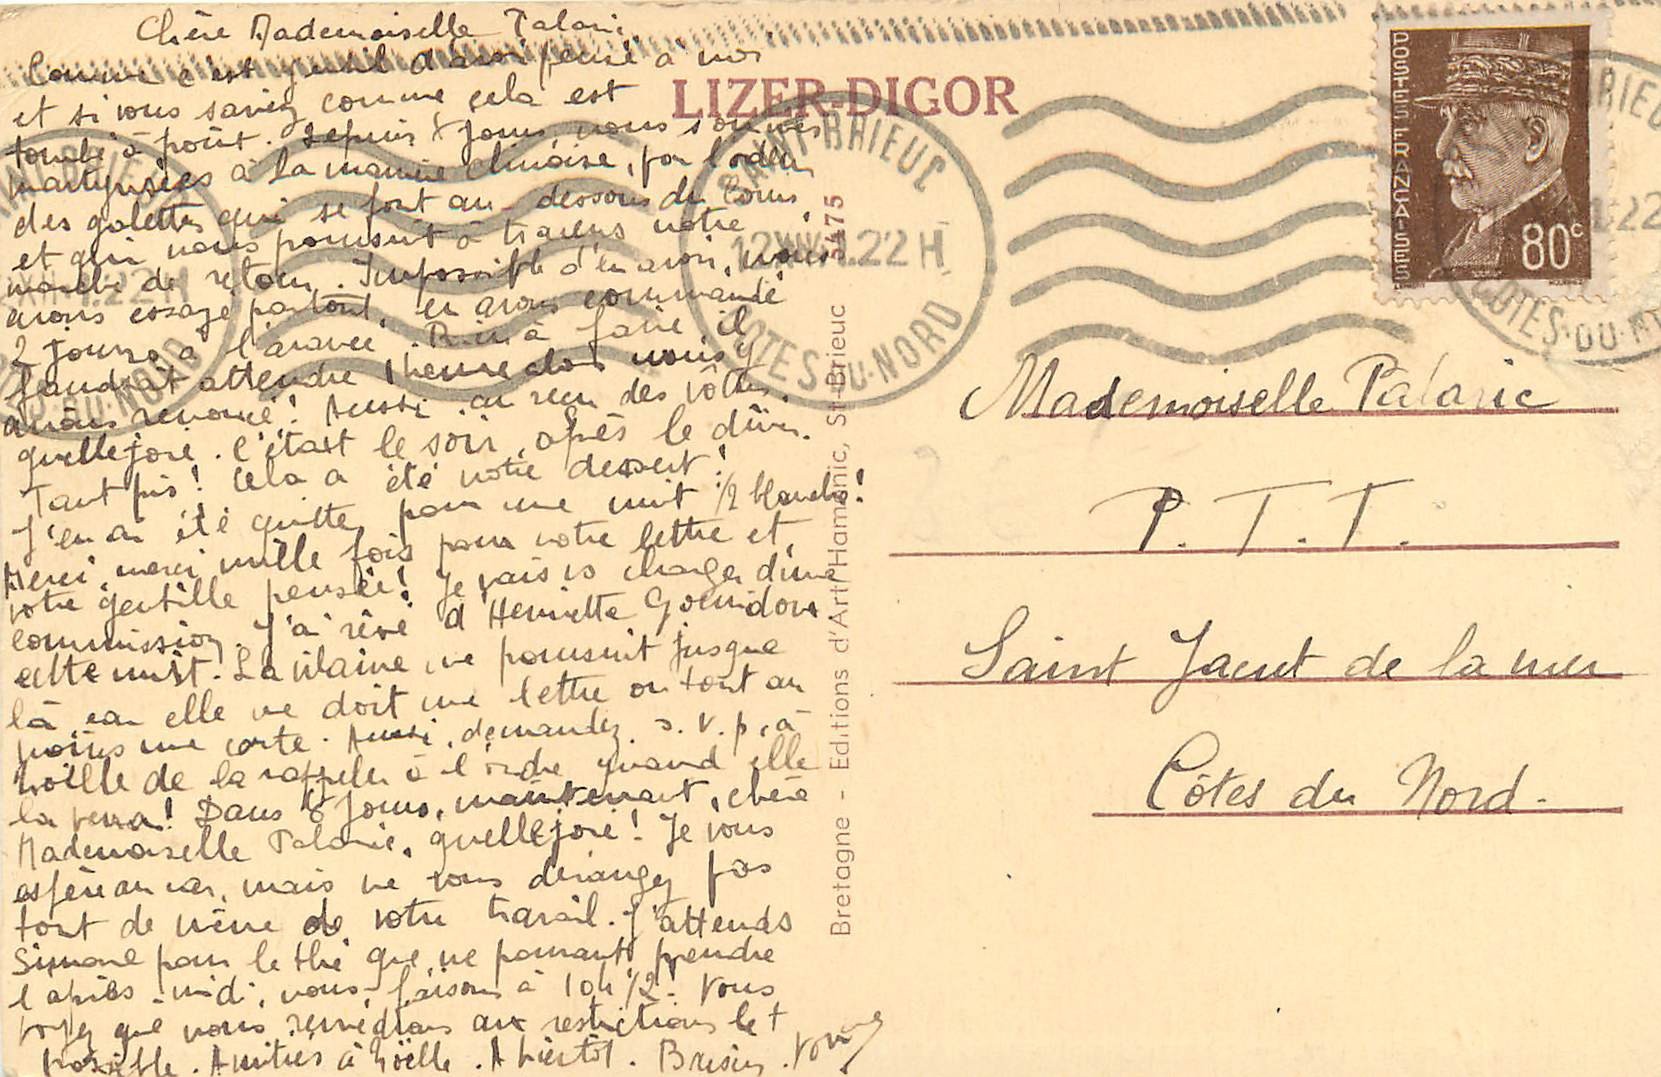 Chère Mademoiselle Palaric,
Comme c'est gentil d'avoir pensé à nos
et si vous saviez comme cela est
tombé à point. Depuis 8 jours, nous sommes
martyrisées à la manière chinoise, par l'odeur
des galettes qui se font au-dessous de
et qui nous poursuit à travers notre
marche de retour. Impossible d'en avoir, nous
avons essayé partout, en avons commandé
2 jours à l'avance. Rien à faire, il
faudrait attendre 1 heure alors nous y
avons renoncé! Aussi, en recu des vôtres,
quelle joie. C'était le soir, après le dîner.
Tant pis! Cela a été notre dessert!
J'en ai été quitte pour une nuit 1/2 blanche!
Merci, merci mille fois pour votre lettre et
votre gentille pensée! Je vais vs charger d'une
commission. J'ai rêvé d'Henriette
cette nuit. La vilaine me poursuit jusque
là car elle me doit une lettre ou tout au
moins une carte. Aussi, demandez s.v.p, à
Noëlle de la rappeler à l'ordre quand elle
la verra! Dans 8 jours, maintenant, chère
Mademoiselle Palaric, quelle joie! Je vous
espère au car, mais ne vous dérangez pas
tout de même de votre travail. J'attends
Simone pour le thé que, ne pouvant prendre
l'après-midi, nous faisons à 10h 1/2. Vous
voyez que nous remédions aux restrictions le +
possible. Amitiés à Noëlle. A bientôt. Baisers.
LIZER-DIGOR
5475
Bretagne - Editions d'Art Hamonic, St-Brieuc
SAINT-BRIEUC
22H
COTES-DU-NORD
POSTES FRANÇAISES
80c
Mademoiselle Palaric
P. T. T.
Saint Jacut de la mer
Côtes du Nord.